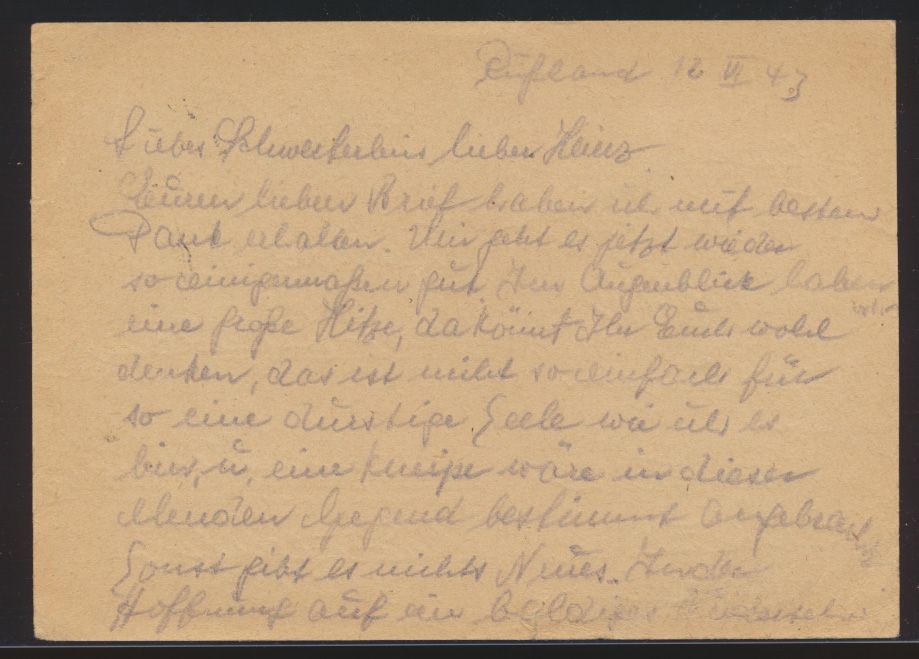 Rußland 12 VI 43
Liebes Schwesterlein lieber Heinz
Euren lieben Brief habe ich mit bestem
Dank erhalten. Mir geht es jetzt wieder
so einigermaßen gut Im Augenblick haben
wir
eine große Hitze, da könnt Ihr Euch wohl
denken, das ist nicht so einfach für
so eine durstige Seele wie ich es
bin, u. eine Kneipe wäre in dieser
elenden Gegend bestimmt angebracht
Sonst gibt es nichts Neues. In der
Hoffnung auf ein baldiges Wiedersehn